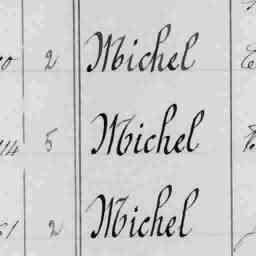 2 Michel
114 5 Michel
2 Michel